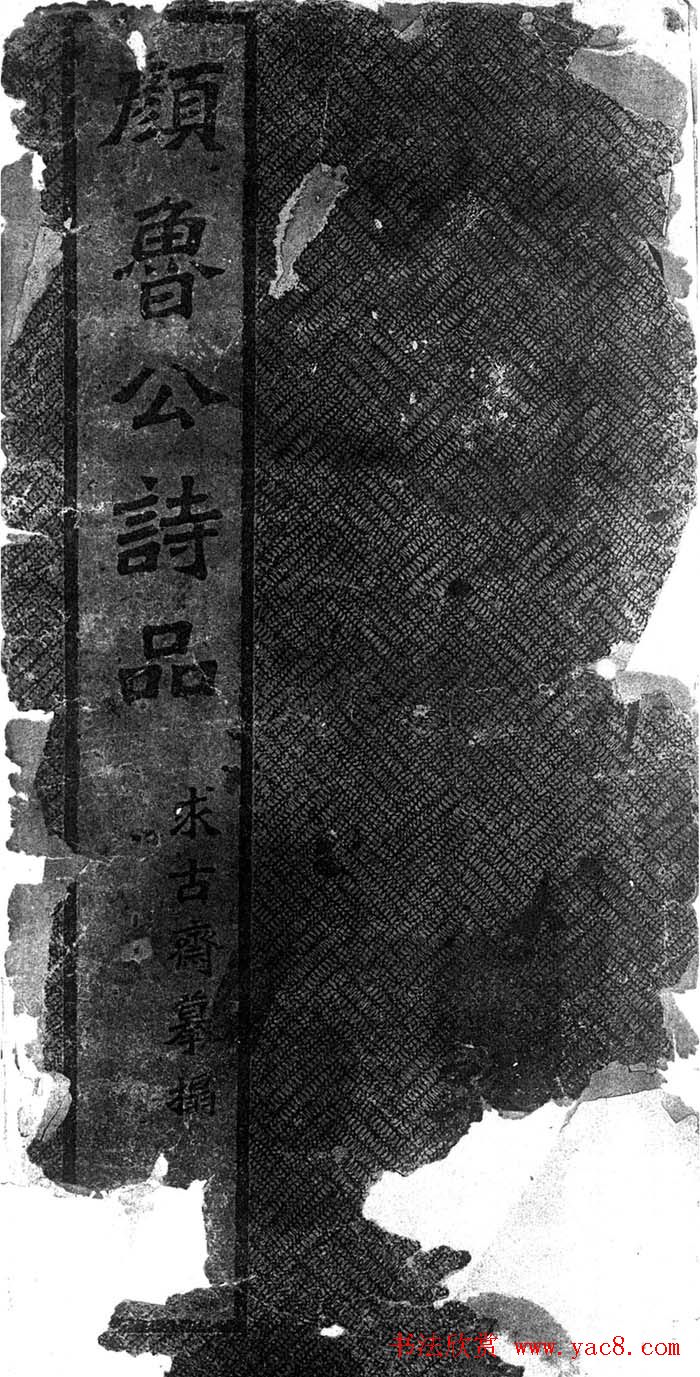 顏魯公詩品
求古齋摹搨
书法欣赏 www.yac8.com